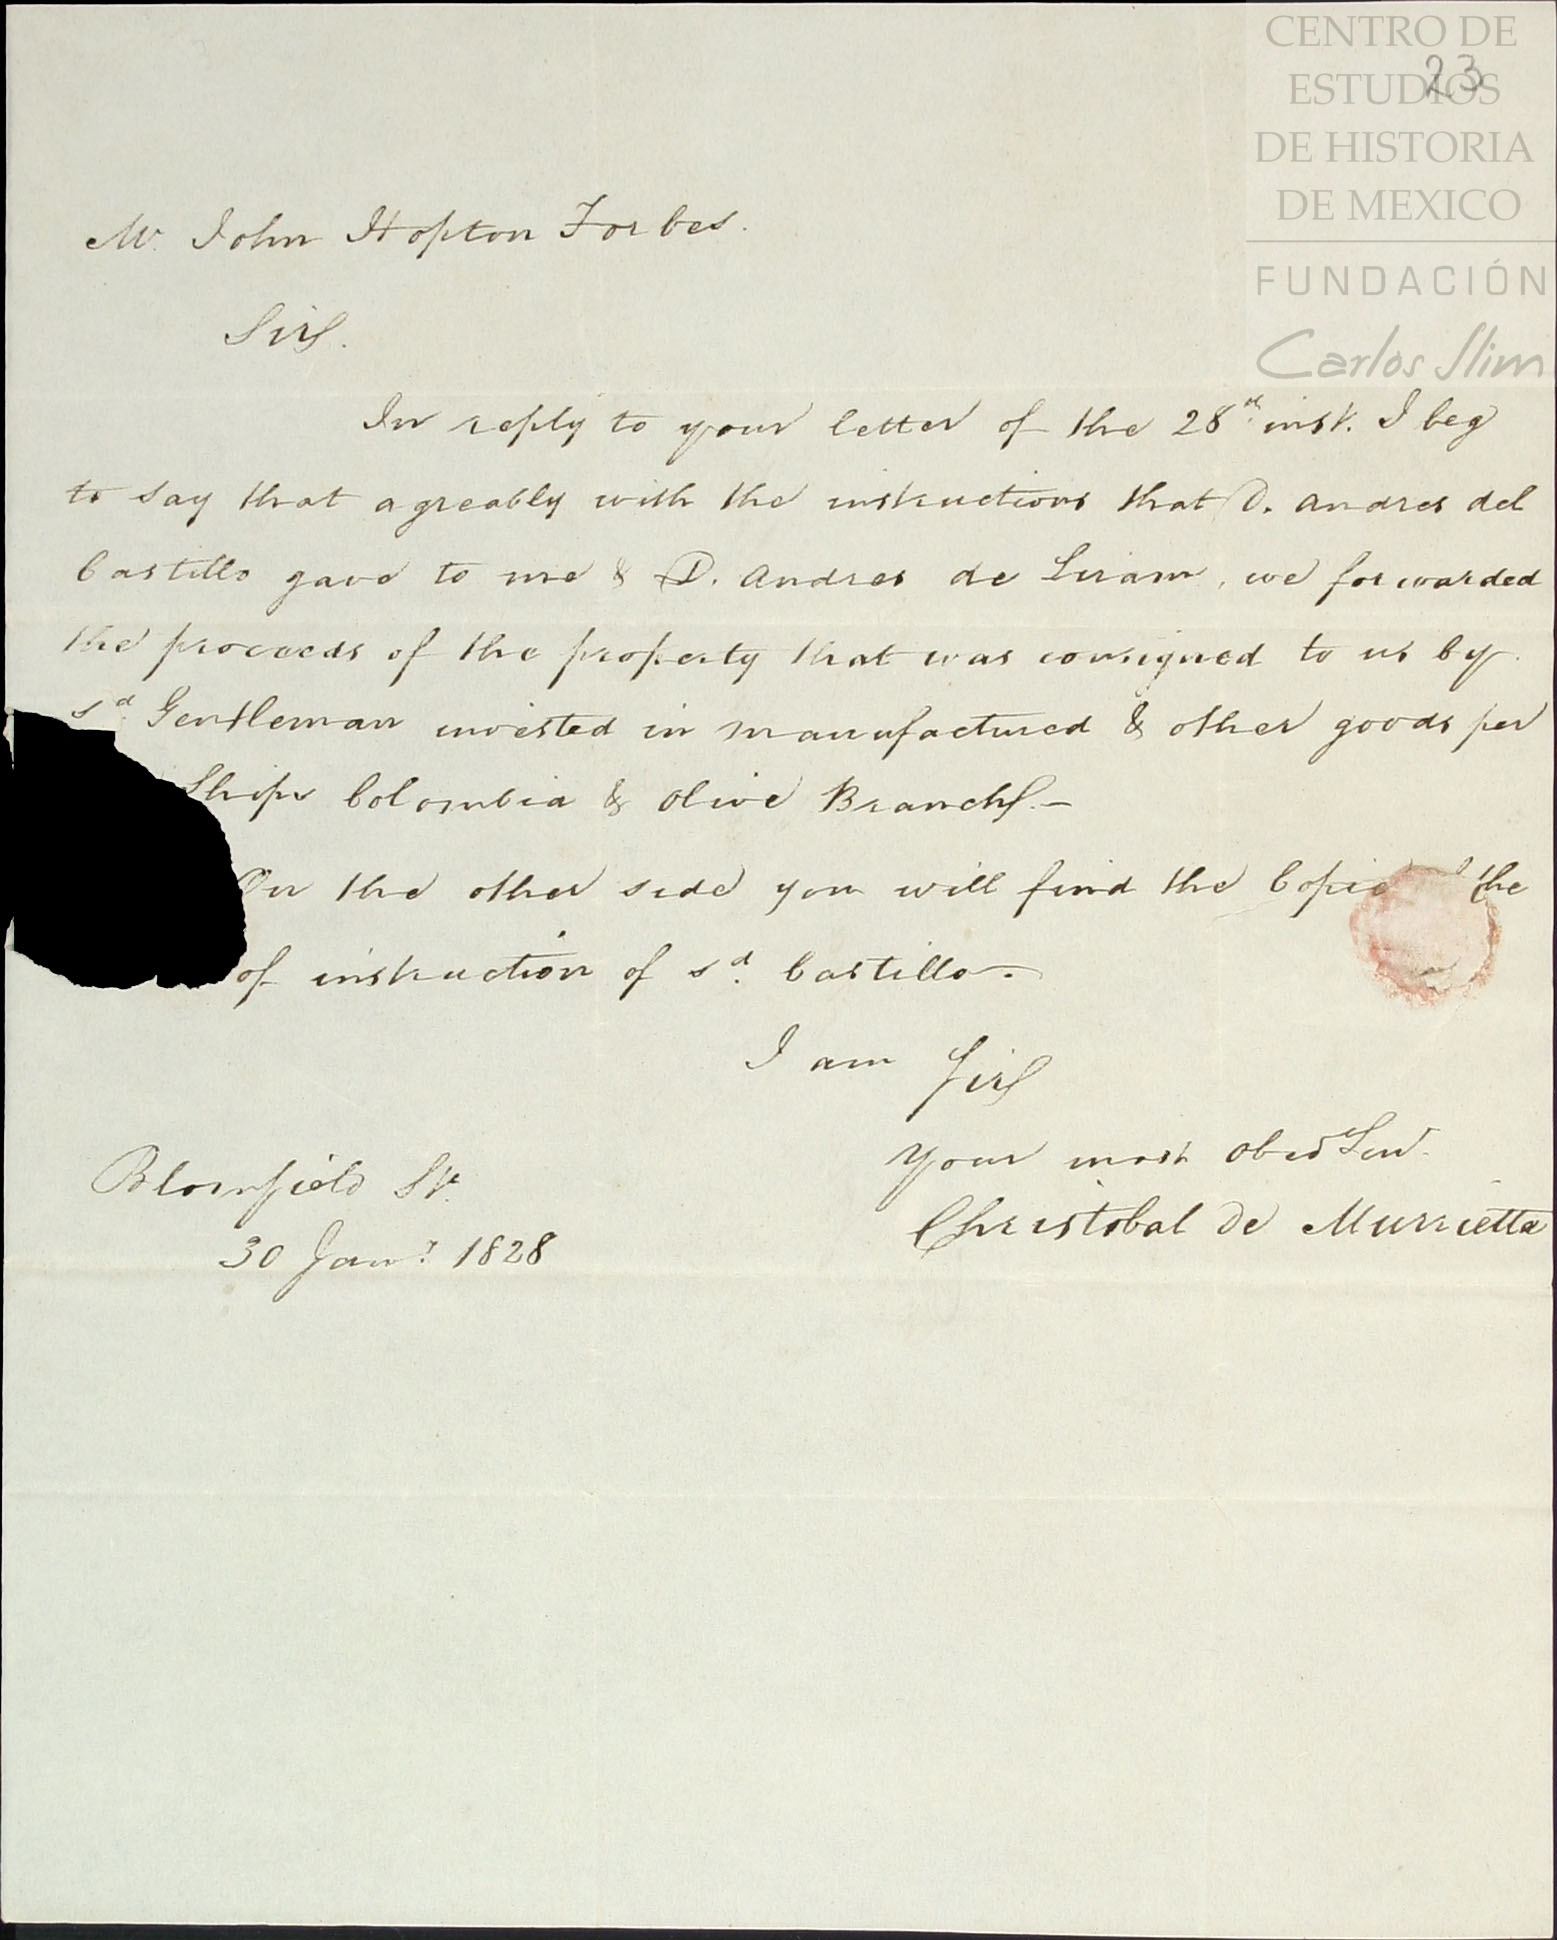 CENTRO DE
ESTUDIOS
DE HISTORIA
DE MEXICO
FUNDACIÓN
Carlos Slim
23
Mr. John Hopton Forbes.
Sir.
In reply to your letter of the 28th inst. I beg
to say that agreably with the instructions that D. Andres del
Castillo gave to me & D. Andres de Liram, we forwarded
the proceeds of the property that was consigned to us by
sd Gentleman invested in manufactured & other goods per
Ships Colombia & Olive Branch.-
On the other side you will find the Copie the
of instruction of sd. Castillo.-
I am Sir
Your most Obed Serv.
Christobal de Murrietta
Blomfield St.
30 Jany. 1828